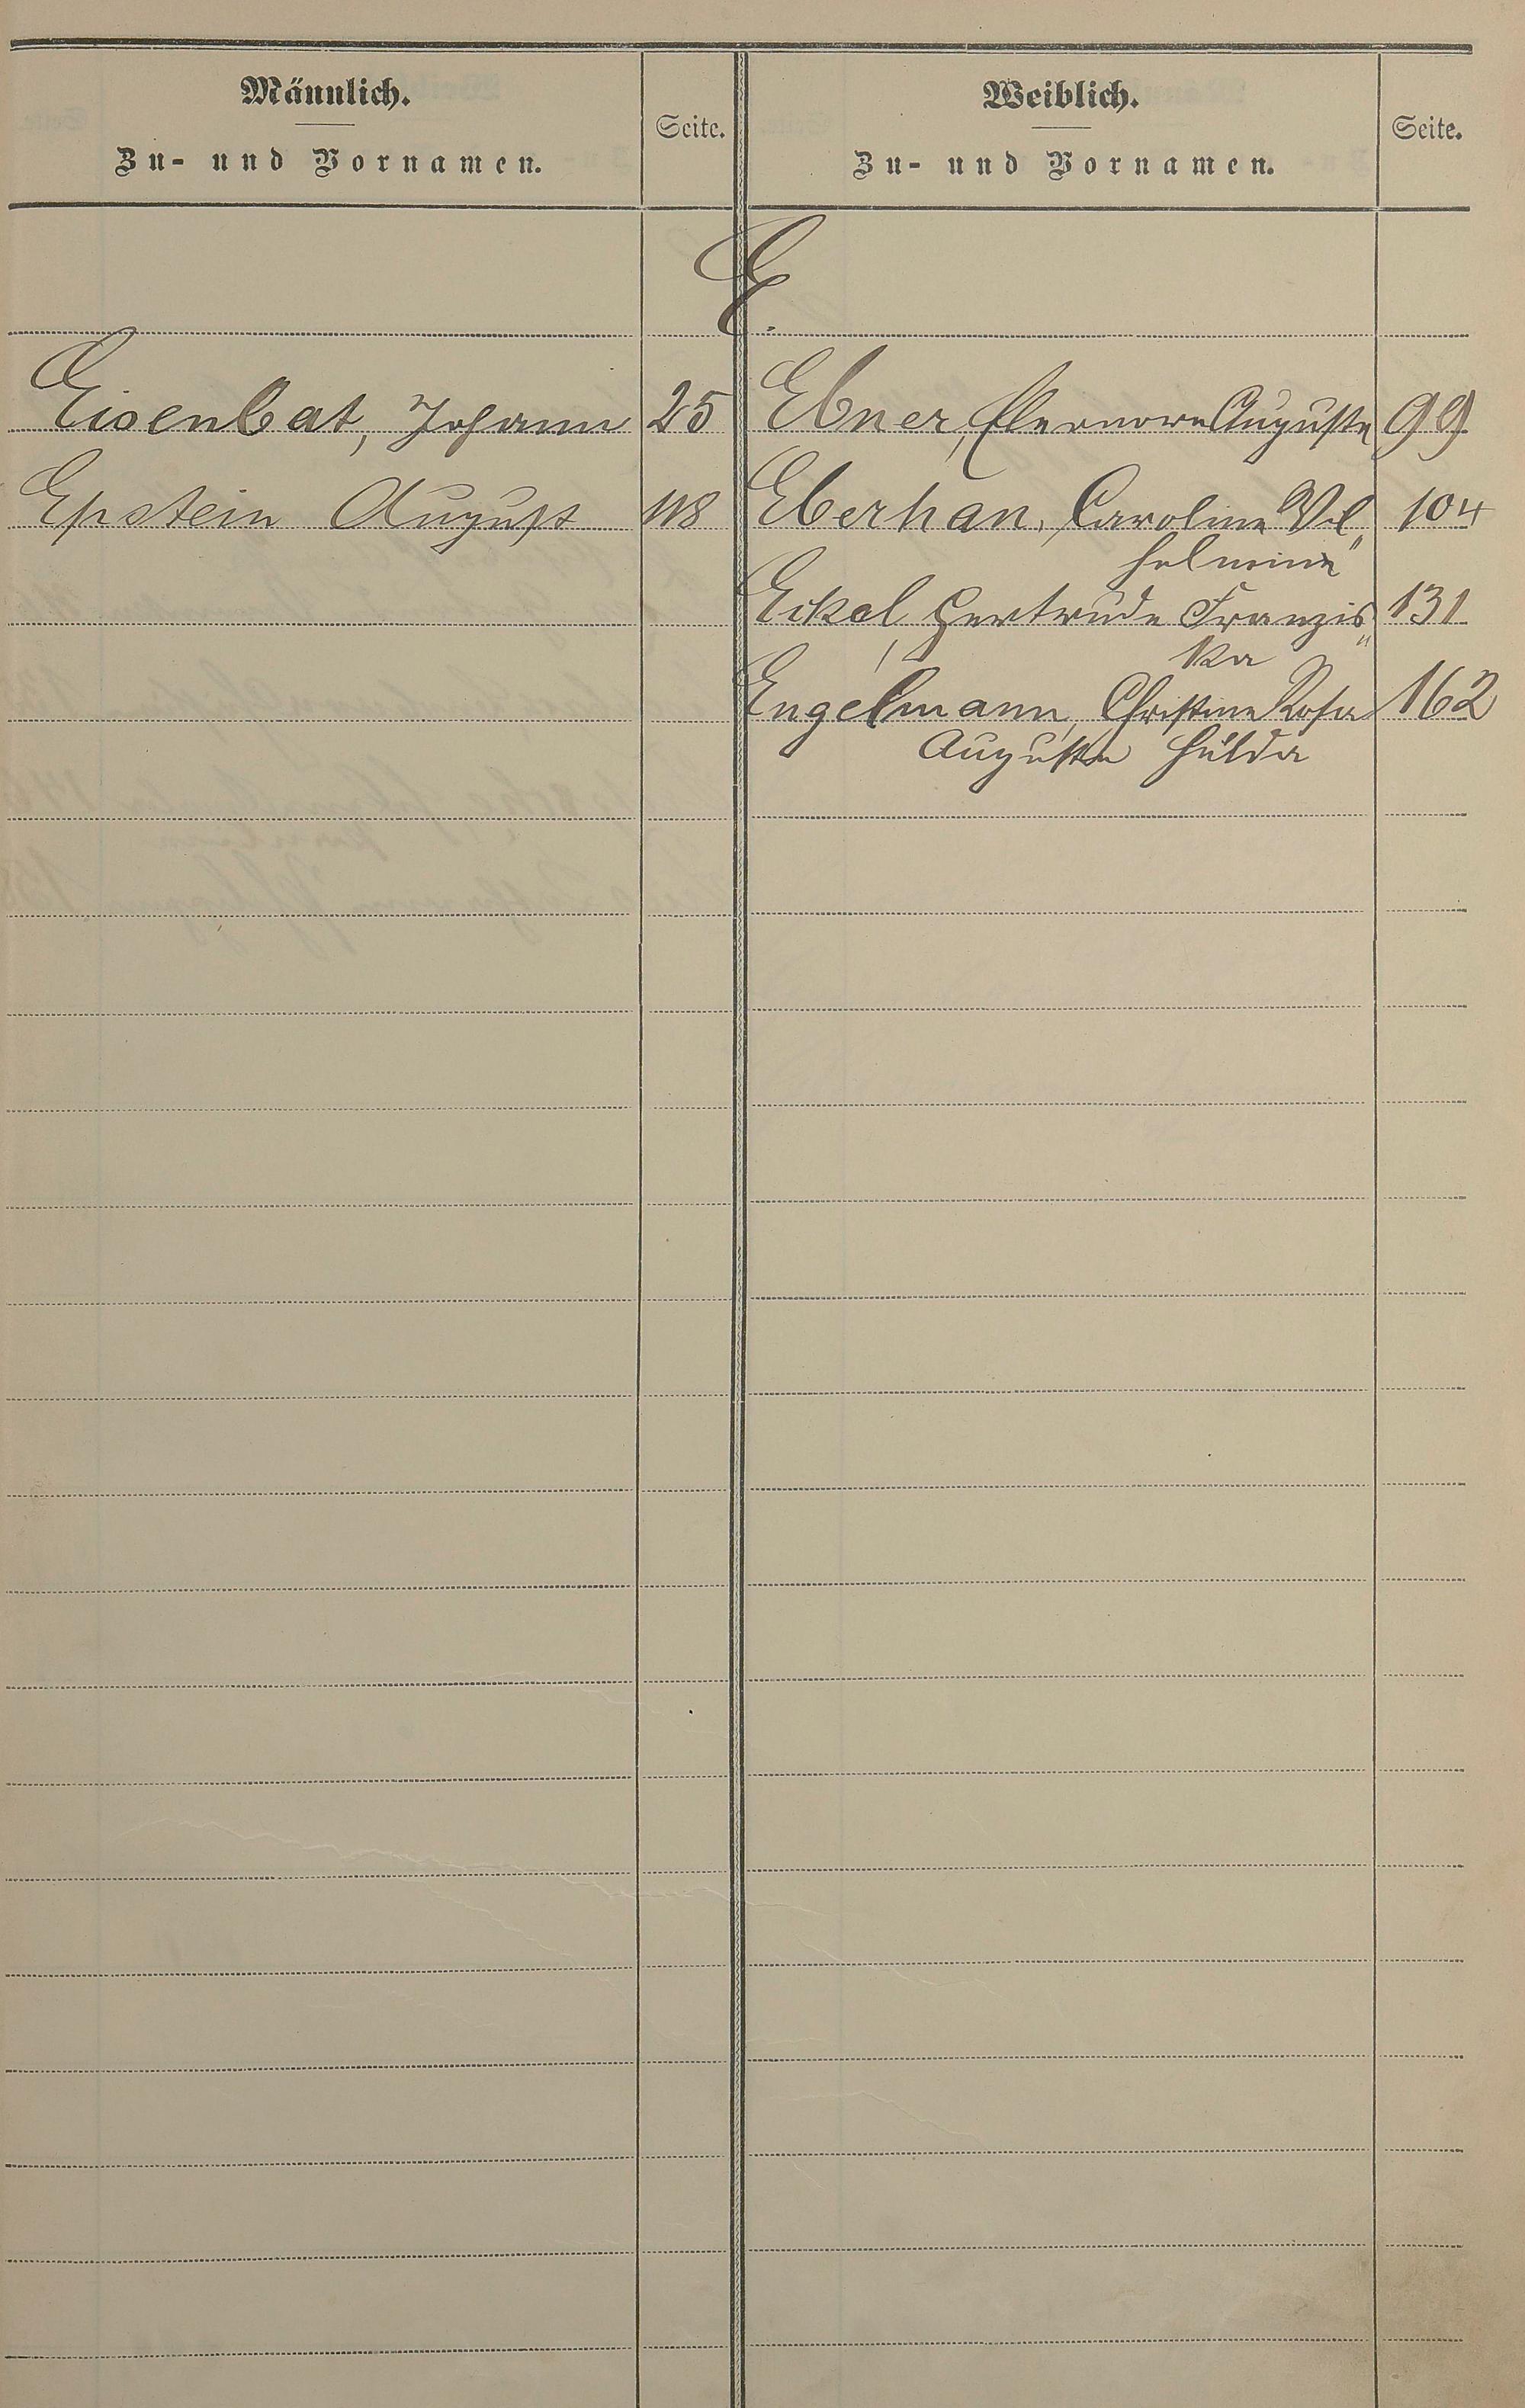 Männlich.
Zu- und Vornamen.
Seite.
Weiblich.
Zu- und Vornamen.
Seite.
E.
Eisenbat, Johann 25
Epstein August 118
Ebner, Eleonore Auguste 99
Eberhan, Caroline Wil„ 104
helmine
Eckel, Gertrude Franzis„ 131
ka
Engelmann, Christine Rosa 162
Auguste Hulda